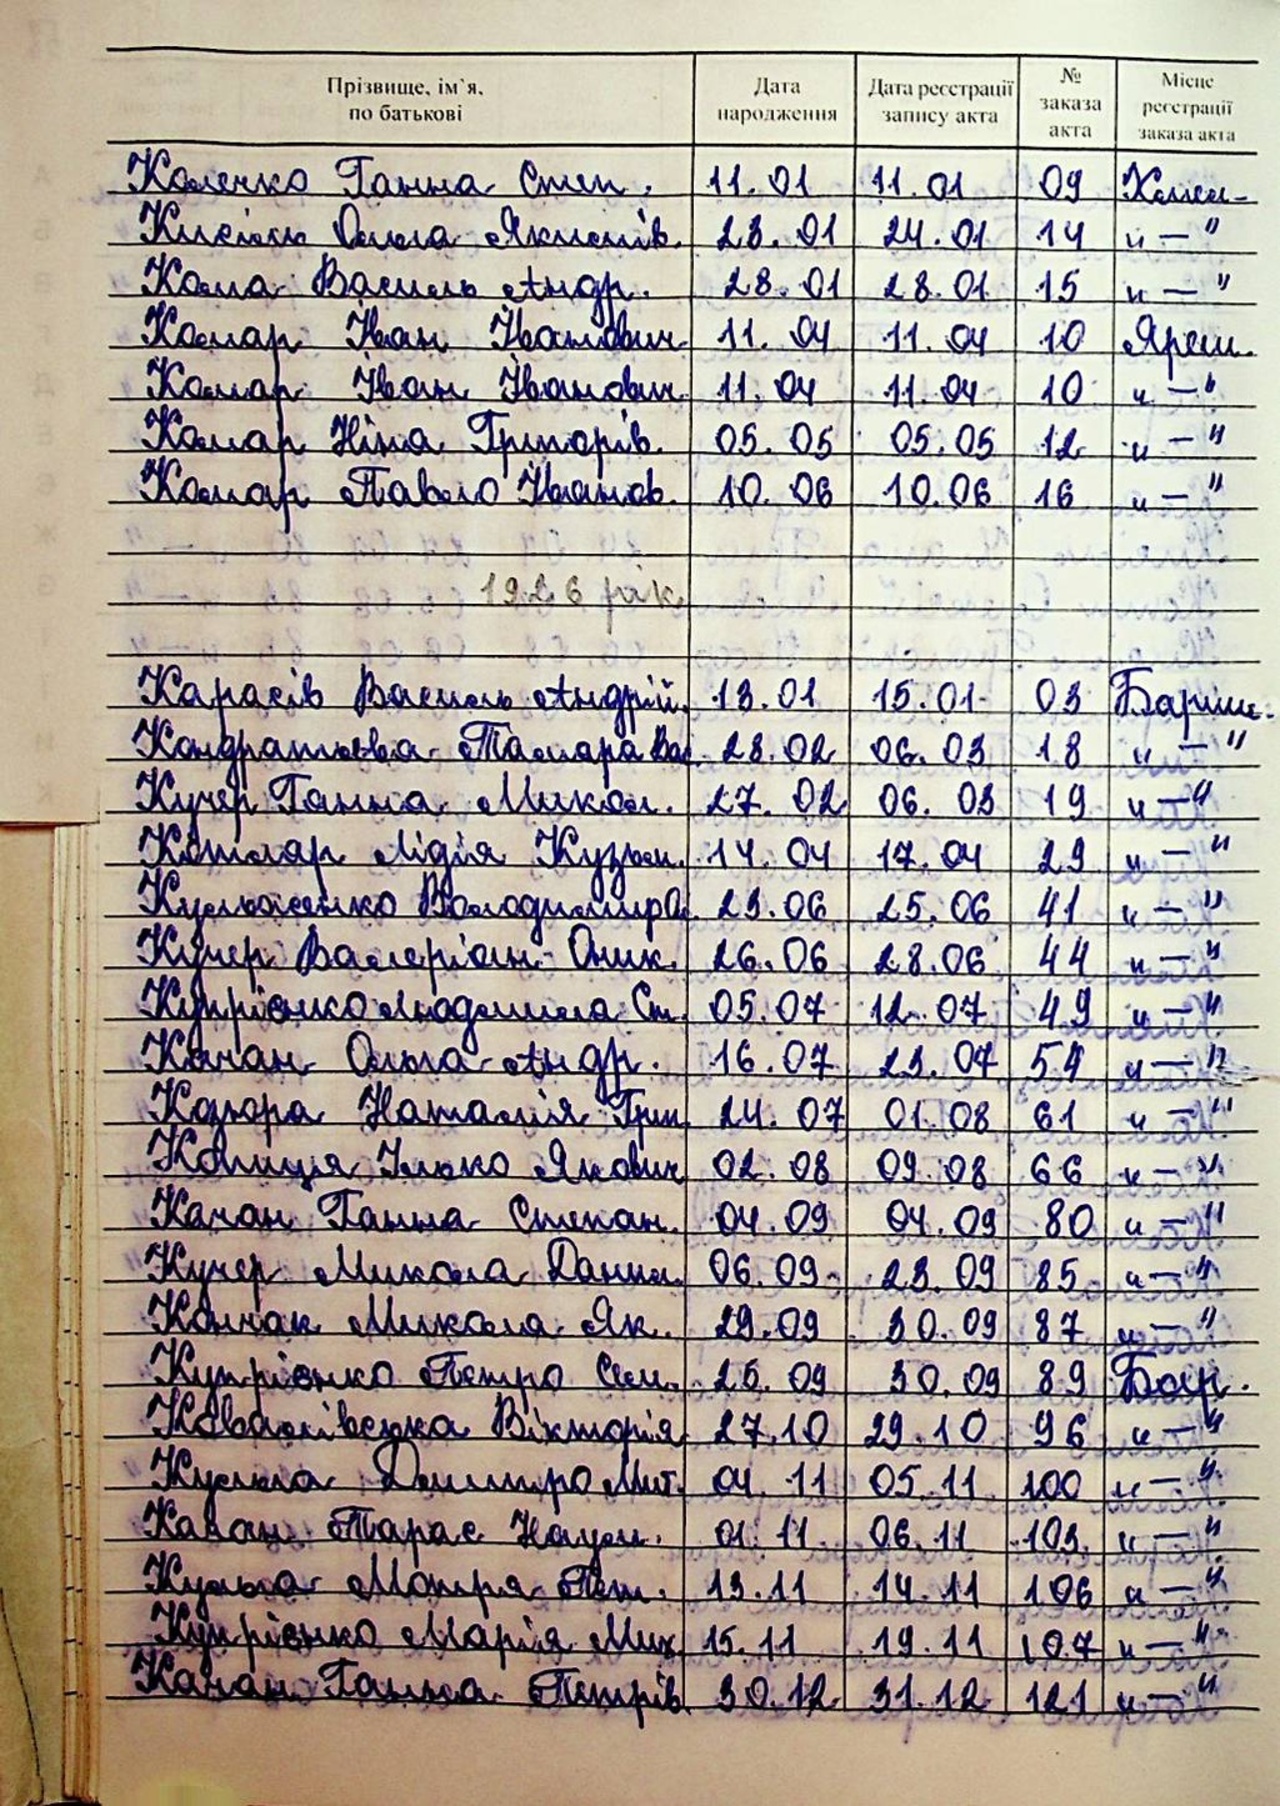 Прізвище, ім`я, по батькові Дата народження Дата реєстрації запису акта № заказа акта Місце реєстрації заказа акта
Колечко Ганна Степ. 11.01 11.01 09 Камен-
Ольга Якимів. 23.01 24.01 14 „ — "
Кома Василь Андр. 28.01 28.01 15 „ — "
Комар Іван Іванович 11.04 11.04 10 Яреш.
Комар Іван Іванович 11.04 11.04 10 „ — "
Комар Ніна Григорів. 05.05 05.05 12 „ — "
Комар Павло Іванов. 10.06 10.06 16 „ — "
1926 рік
Карасів Василь Андрій. 13.01 15.01 03 Бариш.
Кондратьєва Тамара Вас 28.02 06.03 18 „ — "
Кучер Ганна Микол. 27.02 06.03 19 „ — "
Котляр Лідія Кузьм. 14.04 17.04 29 „ — "
Кульженко Володимир 23.06 25.06 41 „ — "
Кучер Валеріан Оник. 26.06 28.06 44 „ — "
Купрієнко Людмила Ст. 05.07 12.07 49 „ — "
Качан Ольга Андр. 16.07 23.07 54 „ — "
Кодюра Наталія Григ 24.07 01.08 61 „ — "
Копиця Ілько Якович 02.08 09.08 66 „ — "
Качан Ганна Степан. 04.09 04.09 80 „ — "
Кучер Микола Данил. 06.09 23.09 85 „ — "
Кончак Микола Як. 29.09 30.09 87 „ — "
Купрієнко Петро Сем. 25.09 30.09 89 Бар.
Ковалівська Вікторія 27.10 29.10 96 „ — "
Кульга Дмитро Мит. 04.11 05.11 100 „ — "
Качан Тарас Наум. 01.11 06.11 103 „ — "
Кульга Мотря Пет. 13.11 14.11 106 „ — "
Купрієнко Марія Мих. 15.11 19.11 107 „ — "
Качан Ганна Петрів 30.12 31.12 121 „ — "